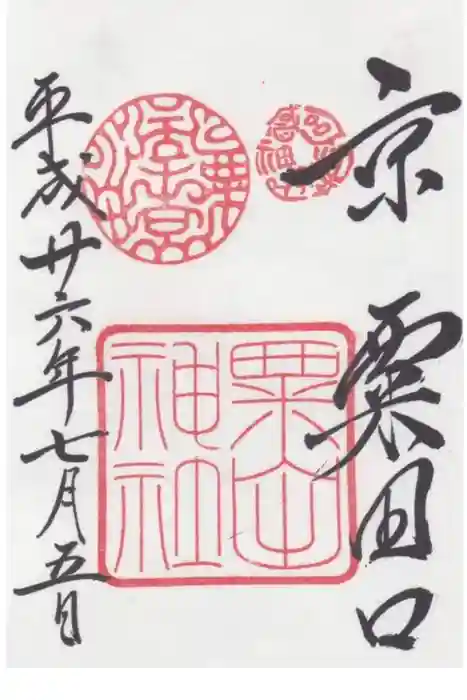 京 粟田口
粟田神社
平成廿六年七月五日